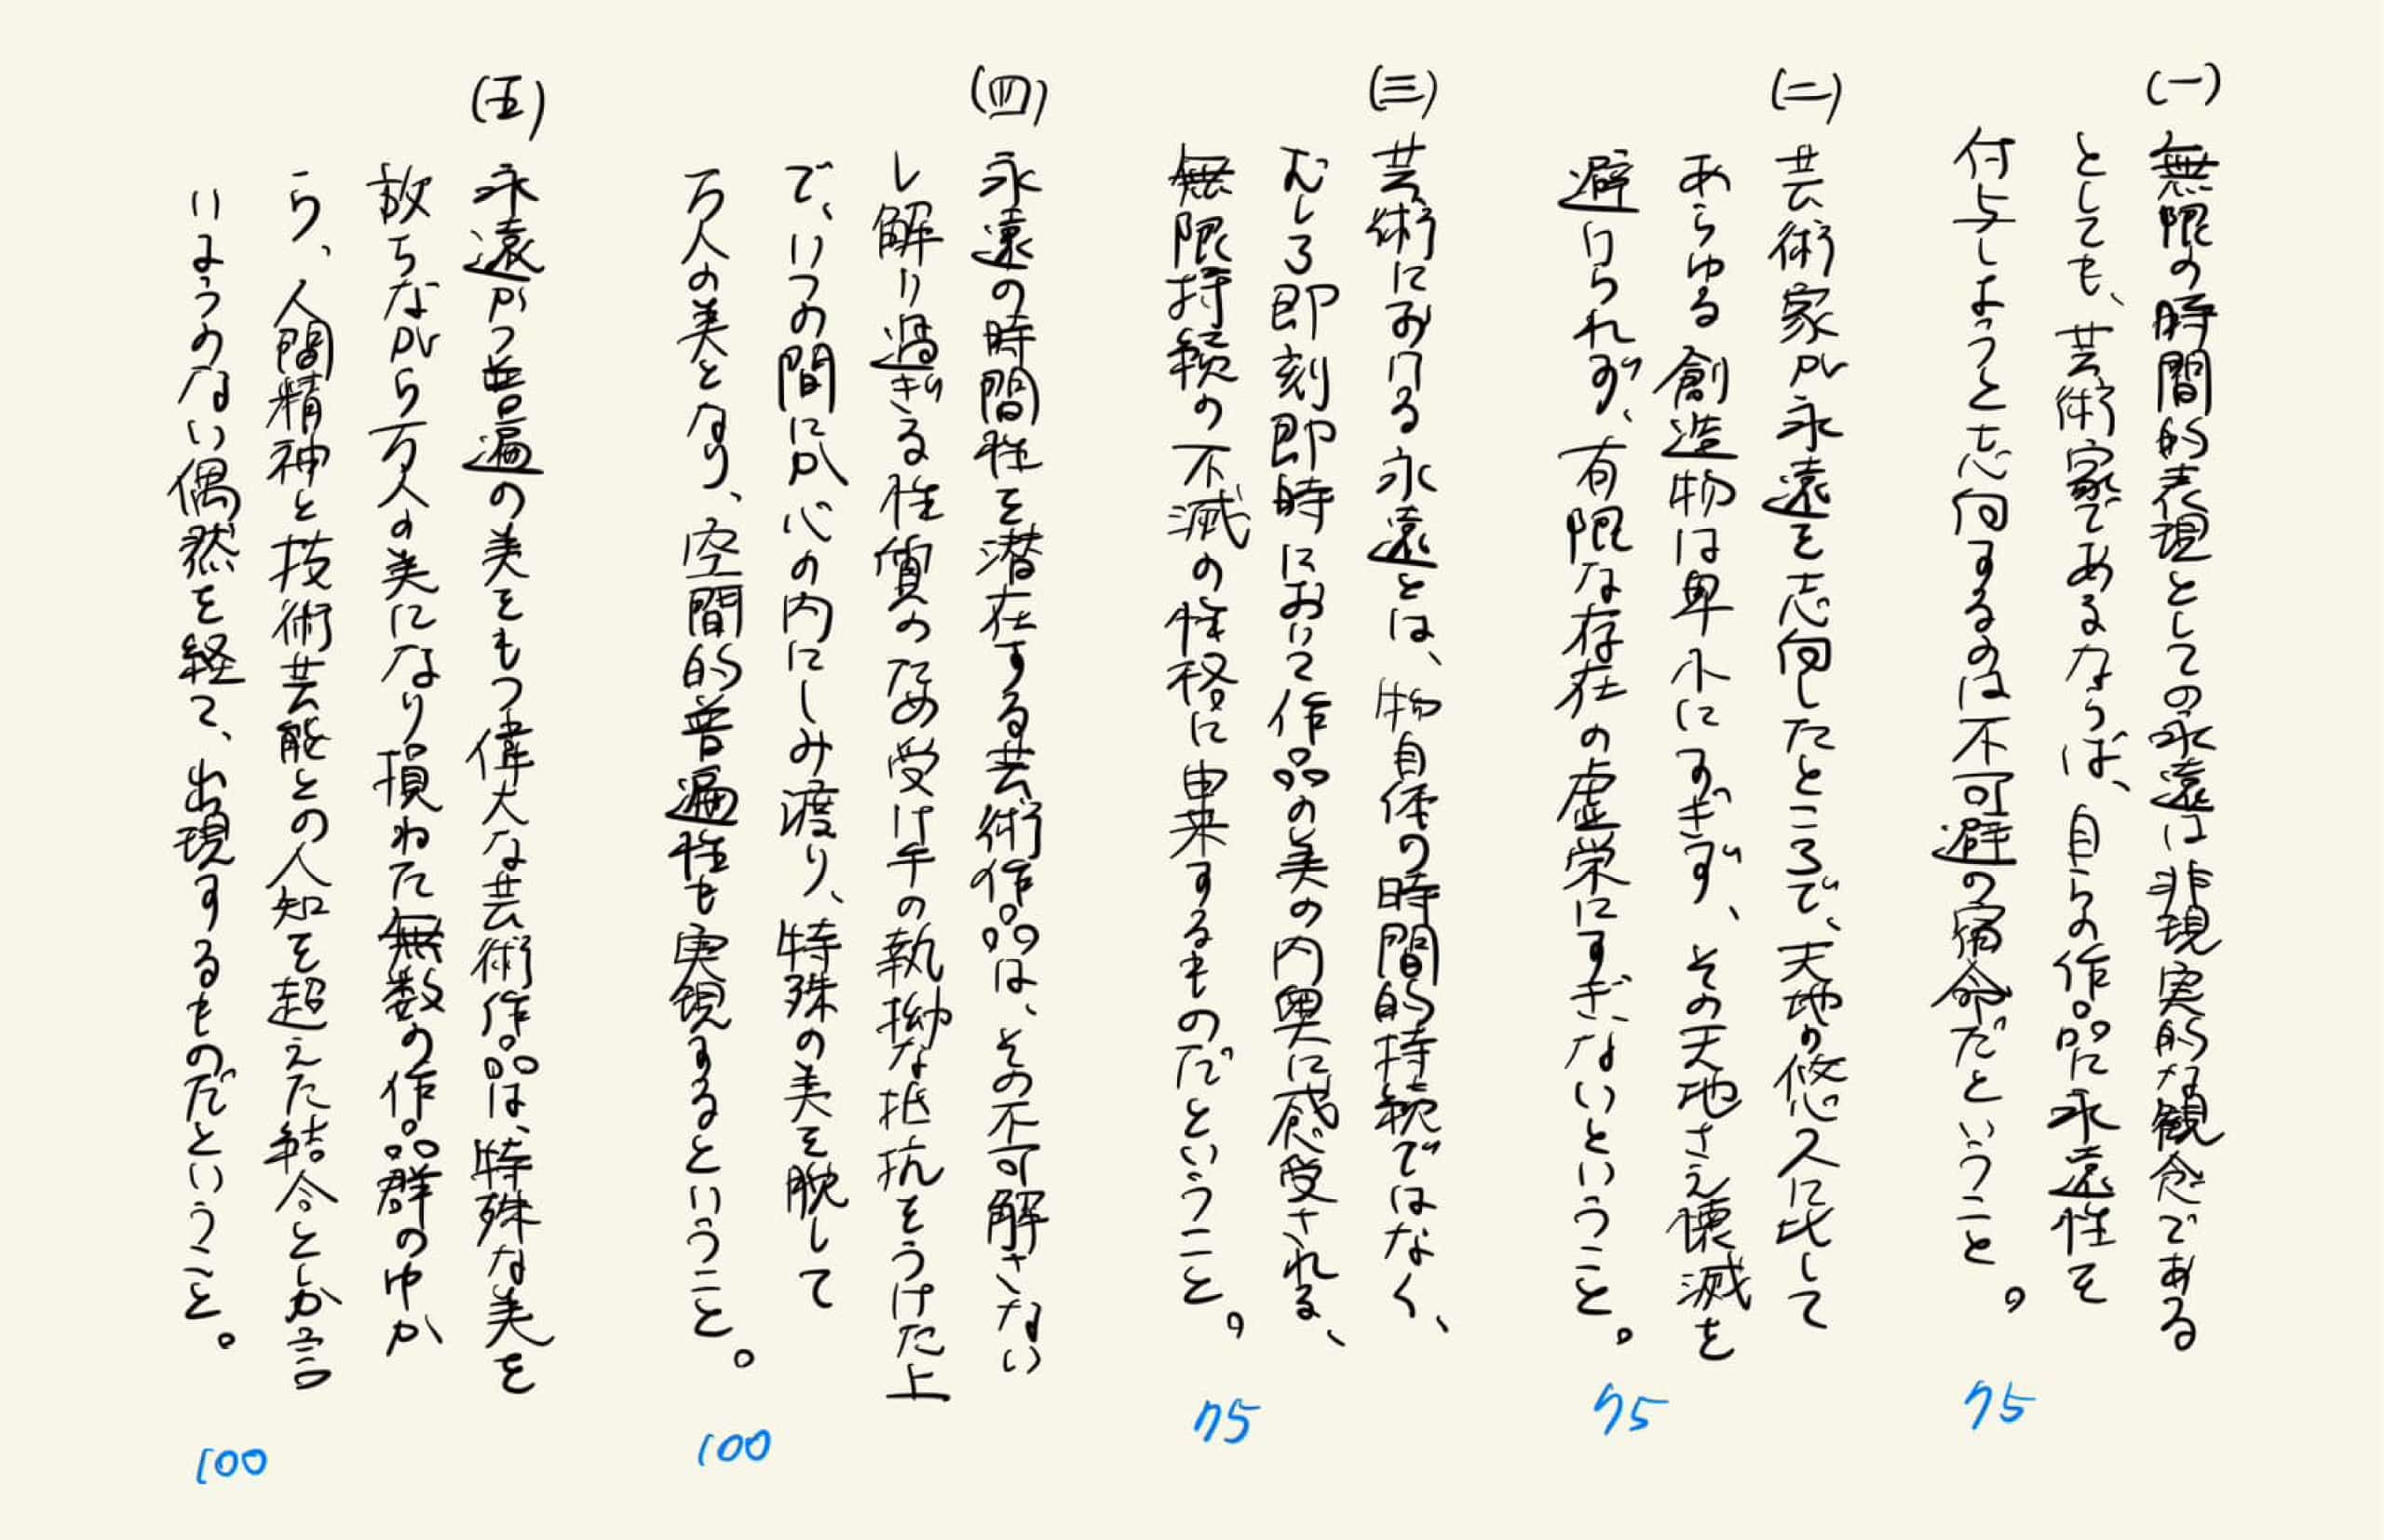 (一) 無限の時間的表現としての永遠は非現実的な観念である
としても、芸術家であるならば、自らの作品に永遠性を
付与しようと志向するのは不可避の宿命だということ。
75
(二) 芸術家が永遠を志向したところで、天地の悠久に比して
あらゆる創造物は卑小にすぎず、その天地さえ壊滅を
避けられず、有限な存在の虚栄にすぎないということ。
75
(三) 芸術における永遠とは、物自体の時間的持続ではなく、
むしろ即刻即時において作品の美の内奥に感受される、
無限持続の不滅の性格に由来するものだということ。
75
(四) 永遠の時間性を潜在する芸術作品は、その不可解さない
し解り過ぎる性質のため受け手の執拗な抵抗をうけた上
で、いつの間にか心の内にしみ渡り、特殊の美を脱して
万人の美となり、空間的普遍性も実現するということ。
100
(五) 永遠かつ普遍の美をもつ偉大な芸術作品は、特殊な美を
放ちながら万人の美になり損ねた無数の作品群の中か
ら、人間精神と技術芸能との人知を超えた結合としか言
いようのない偶然を経て、出現するものだということ。
100